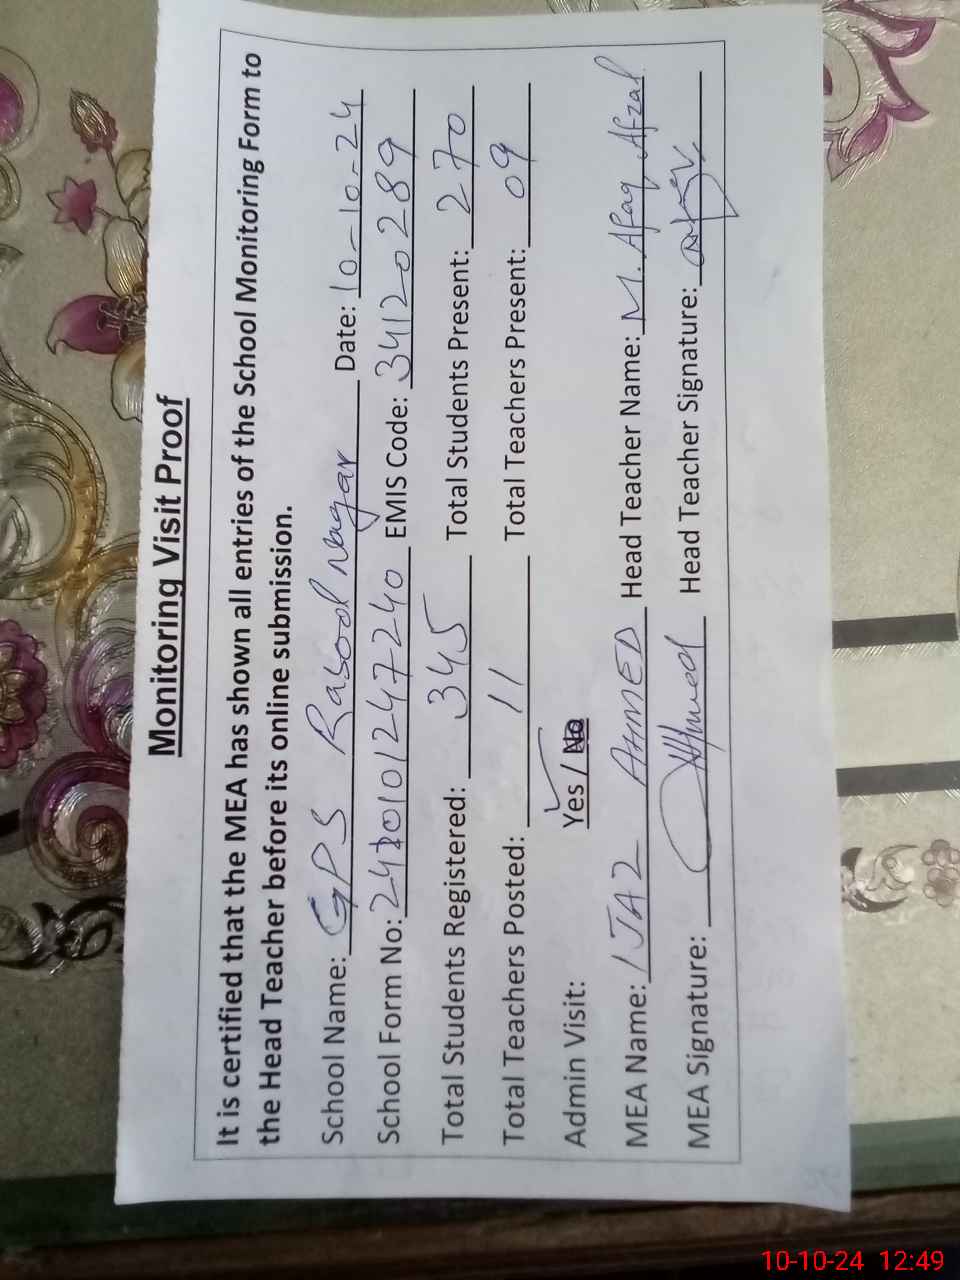 Monitoring Visit Proof
It is certified that the MEA has shown all entries of the School Monitoring Form to
the Head Teacher before its online submission.
School Name: GPS Rasool Nagar Date: 10-10-24
School Form No: 2410101247240 EMIS Code: 34120289
Total Students Registered: 345 Total Students Present: 270
Total Teachers Posted: 11 Total Teachers Present: 09
Admin Visit: Yes / No
MEA Name: IJAZ AHMED Head Teacher Name: M. Afaq Afzal
MEA Signature: Ahmed Head Teacher Signature:
10-10-24 12:49